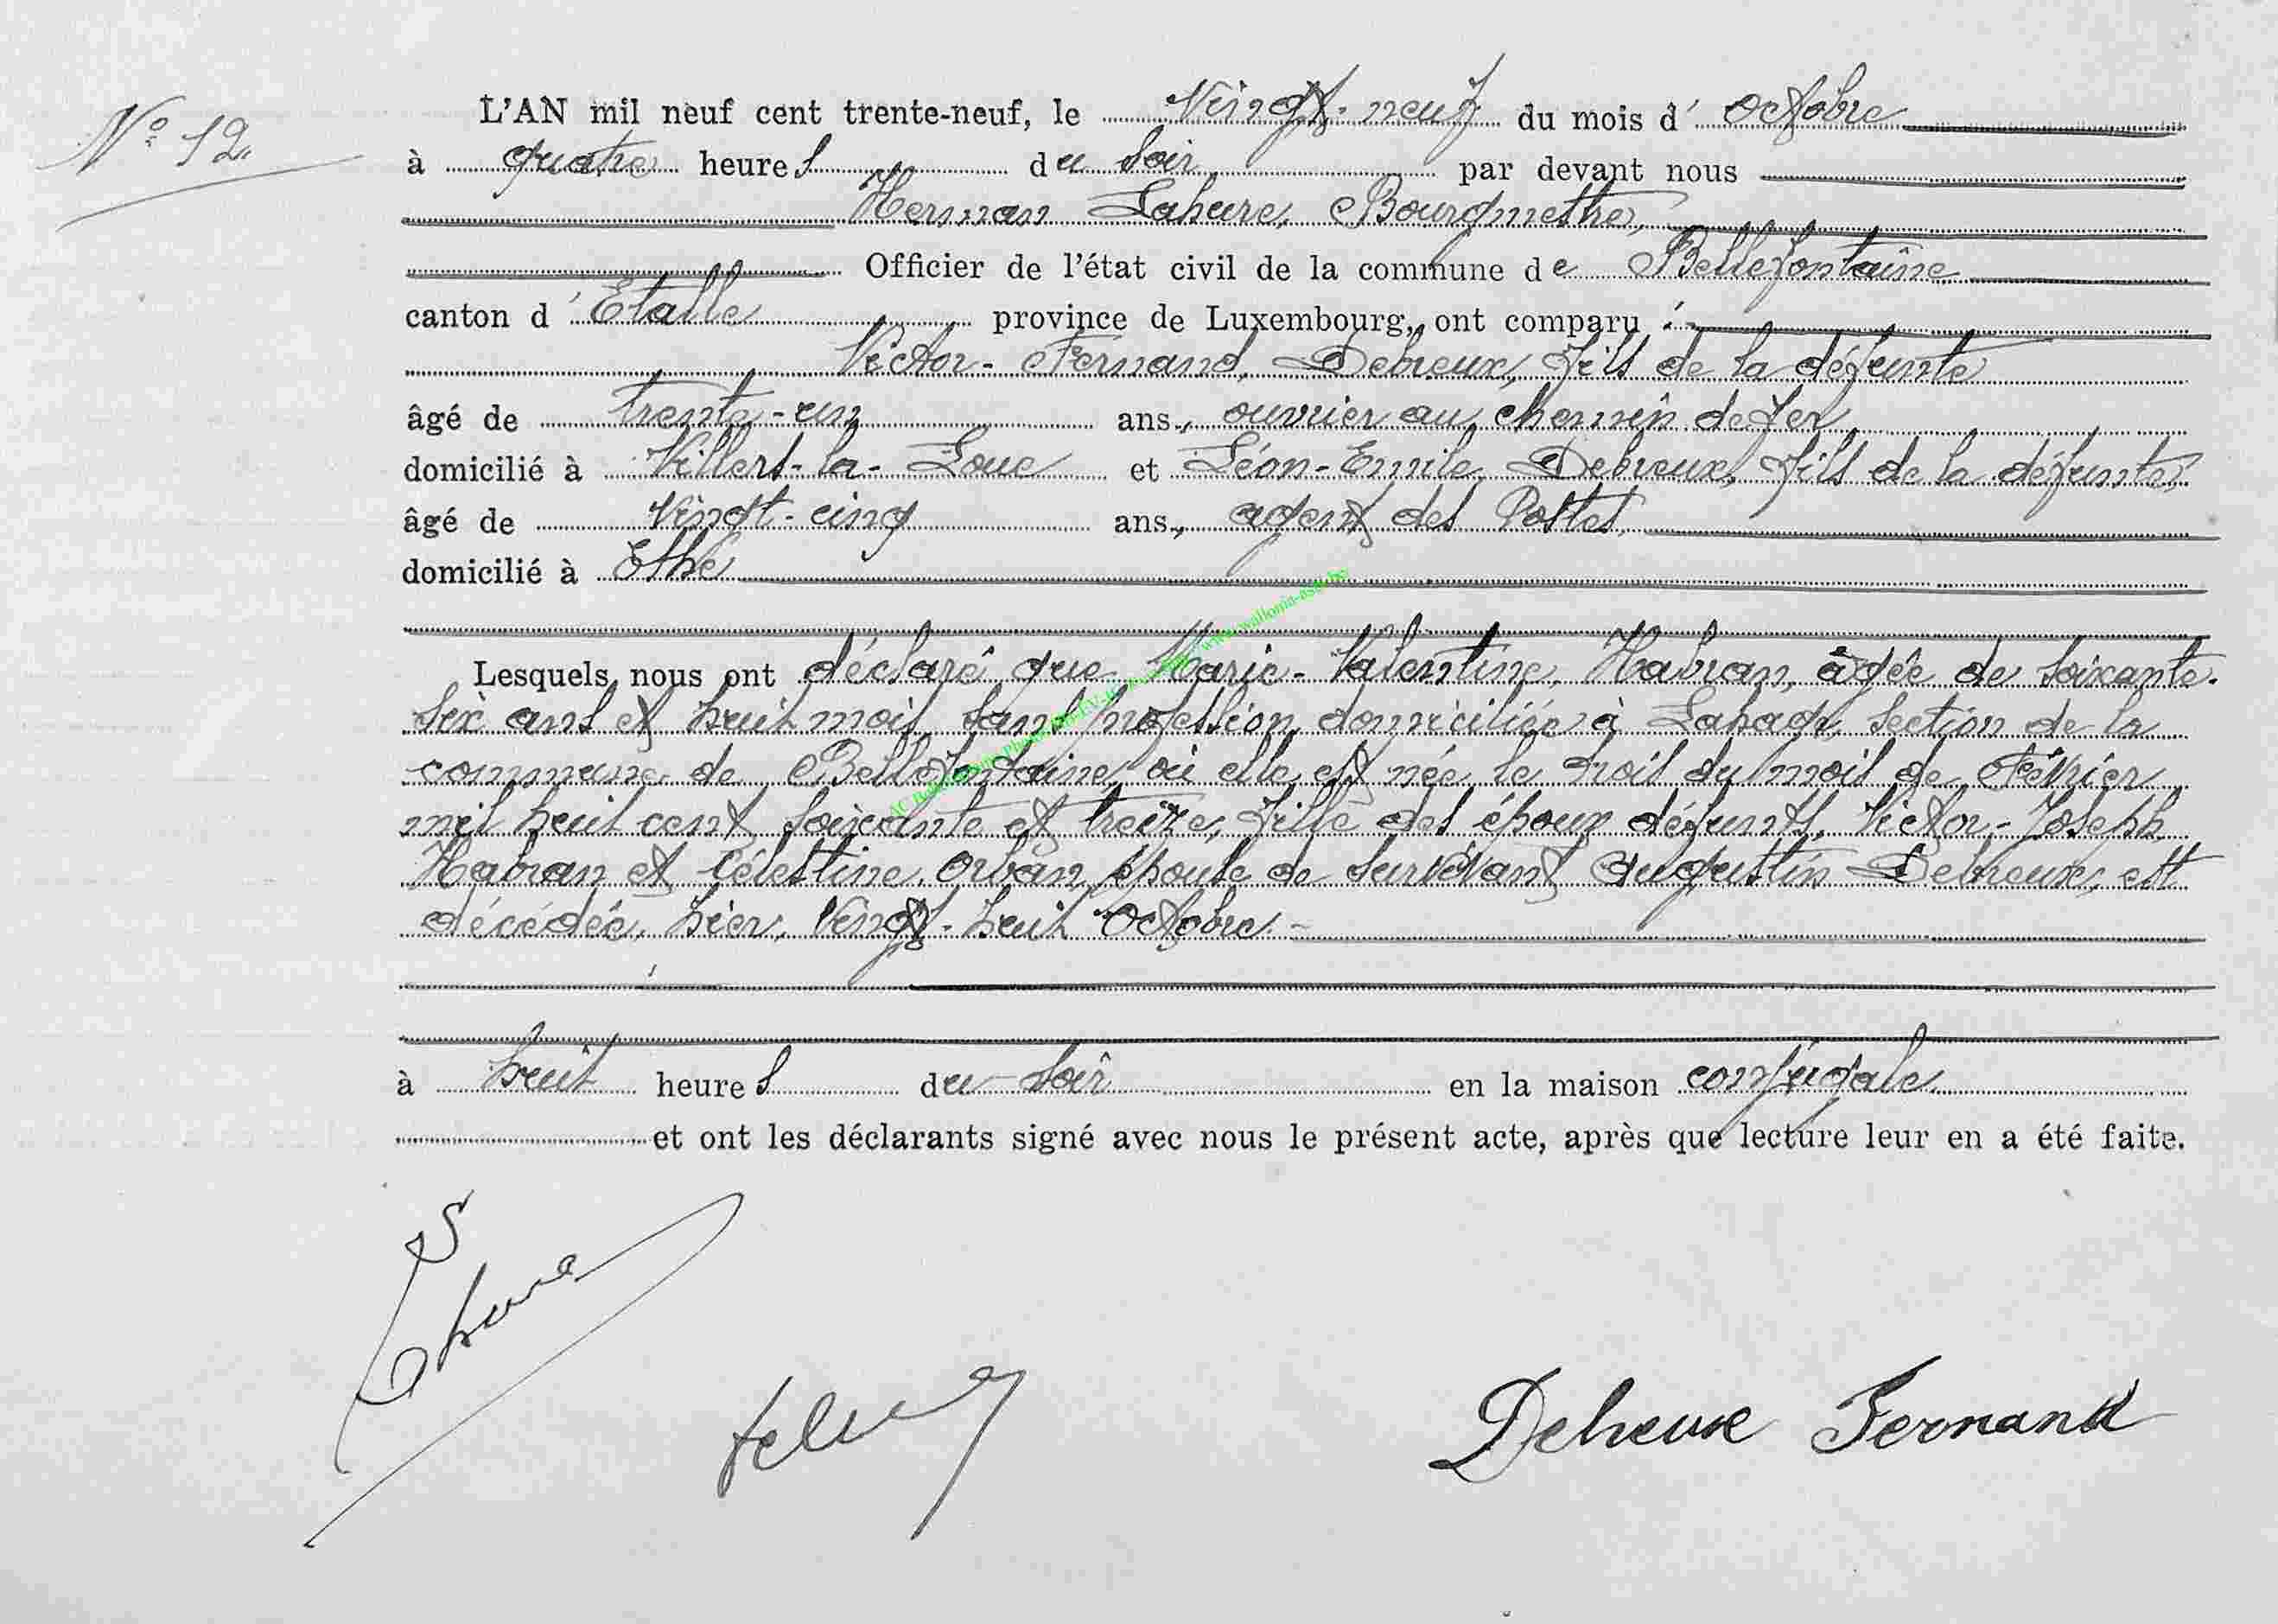 N° 12.
L'AN mil neuf cent trente-neuf, le Vingt-neuf du mois d' Octobre
à quatre heures du soir par devant nous
Herman Lahure, Bourgmestre,
Officier de l'état civil de la commune de Bellefontaine
canton d' Etalle province de Luxembourg, ont comparu :
Victor-Fernand, Debreux, fils de la défunte
âgé de trente-un ans, ouvrier au chemin de fer
domicilié à Villers-la-Loue et Léon-Emile, Debreux, fils de la défunte,
âgé de vingt-cinq ans, agent des Postes,
domicilié à Ethe
Lesquels nous ont déclaré que Marie-Valentine, Habran, âgée de soixante-
six ans et huit mois, sans profession, domiciliée à Lahage, section de la
commune de Bellefontaine, où elle est née le trois du mois de Février
mil huit cent soixante et treize, fille des époux défunts, Victor-Joseph
Habran et Célestine, Orban, épouse de survivant Augustin Debreux, est
décédée, hier, vingt-huit Octobre
à huit heures du soir en la maison conjugale
et ont les déclarants signé avec nous le présent acte, après que lecture leur en a été faite.
Lahure
Debreux Fernand